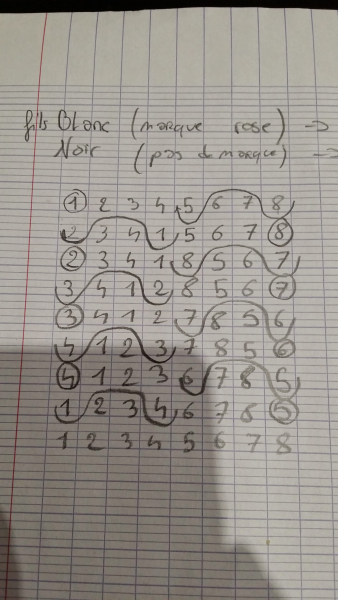 fils Blanc (marque rose) →
Noir (pas de marque) →
1 2 3 4 5 6 7 8
2 3 4 1 5 6 7 8
2 3 4 1 8 5 6 7
3 4 1 2 8 5 6 7
3 4 1 2 7 8 5 6
4 1 2 3 7 8 5 6
4 1 2 3 6 7 8 5
1 2 3 4 6 7 8 5
1 2 3 4 5 6 7 8